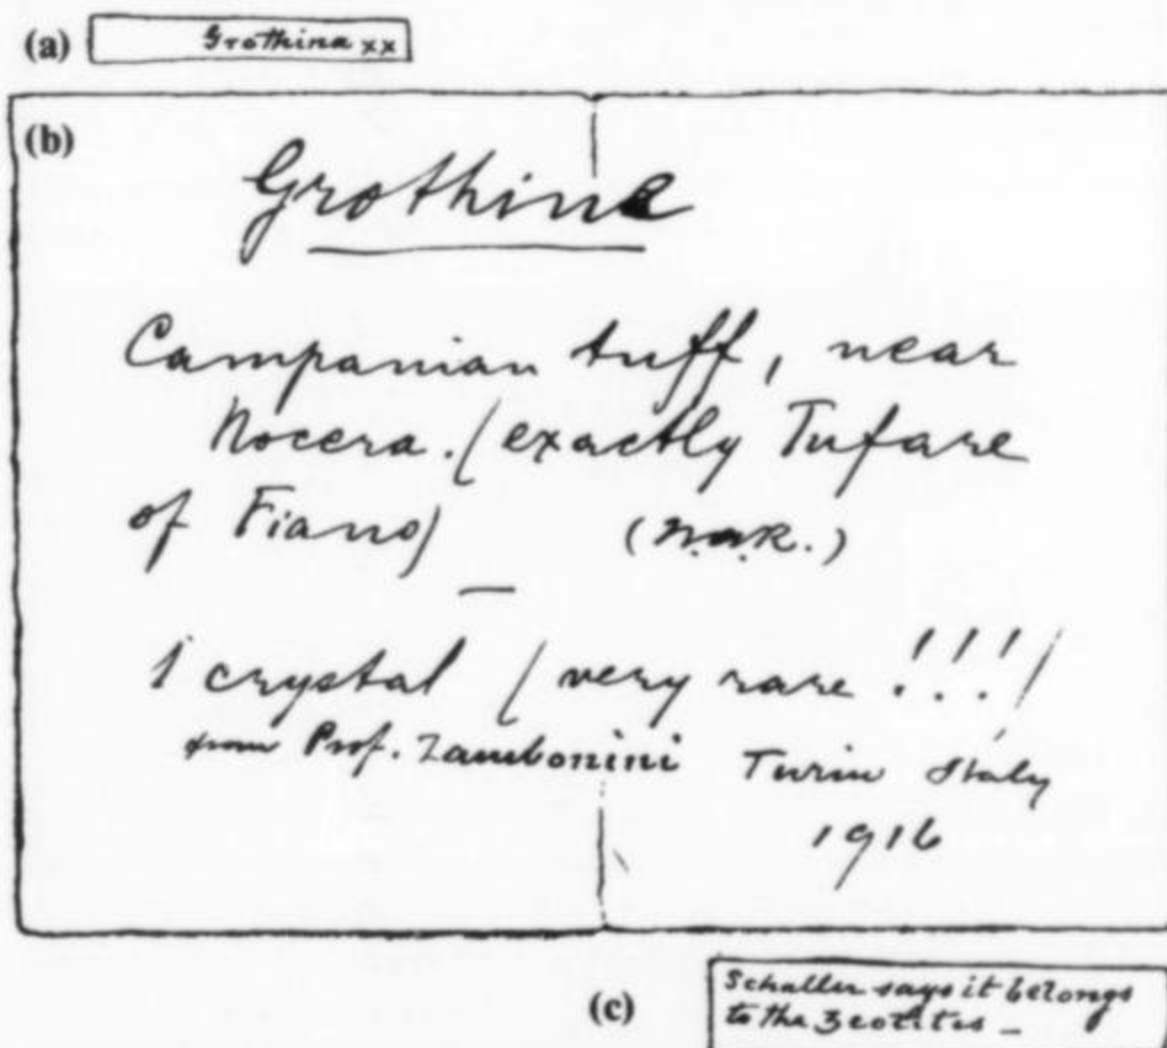 (a) Grothina xx
(b)
Grothine
Campanian tuff, near
Nocera. (exactly Tufare
of Fiano)
1 crystal (very rare !!!)
from Prof. Zambonini Turin Italy
1916
(c) Schaller says it belongs
to the zeolites _